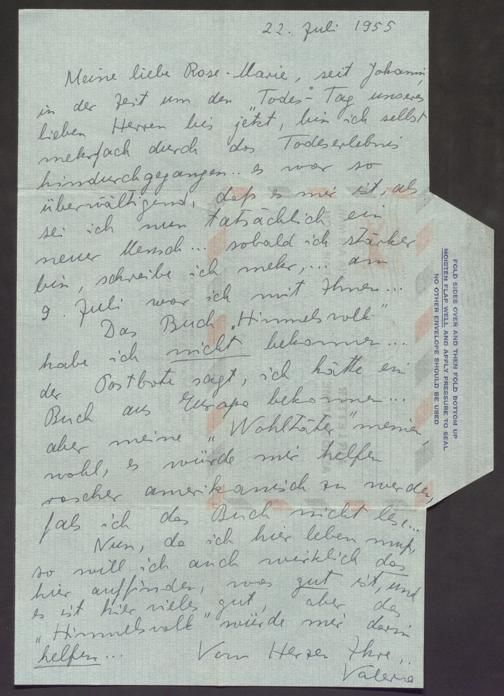 22. Juli 1955
Meine liebe Rose-Marie, seit Johanni
in der Zeit um den "Todes"-Tag unseres
lieben Herren bis jetzt, bin ich selbst
mehrfach durch das Todeserlebnis
hindurchgegangen.. es war so
überwältigend, daß es mir ist, als
sei ich nun tatsächlich ein
neuer Mensch... sobald ich stärker
bin, schreibe ich mehr,... am
9 Juli war ich mit Ihnen...
Das Buch "Himmelsvolk"
habe ich nicht bekommen...
der Postbote sagt, ich hätte ein
Buch aus Europa bekommen...
aber meine "Wohltäter" meinen
wohl, es würde mir helfen
rascher amerikanisch zu werden,
fals ich das Buch nicht les...
Nun, da ich hier leben muß,
so will ich auch wirklich das
hier auffinden, was gut ist, und
es ist hier vieles gut aber das
"Himmelsvolk" würde mir darin
helfen... Vom Herzen Ihre..
Valerie
FOLD SIDES OVER AND THEN FOLD BOTTOM UP
MOISTEN FLAP WELL AND APPLY PRESSURE TO SEAL
NO OTHER ENVELOPE SHOULD BE USED